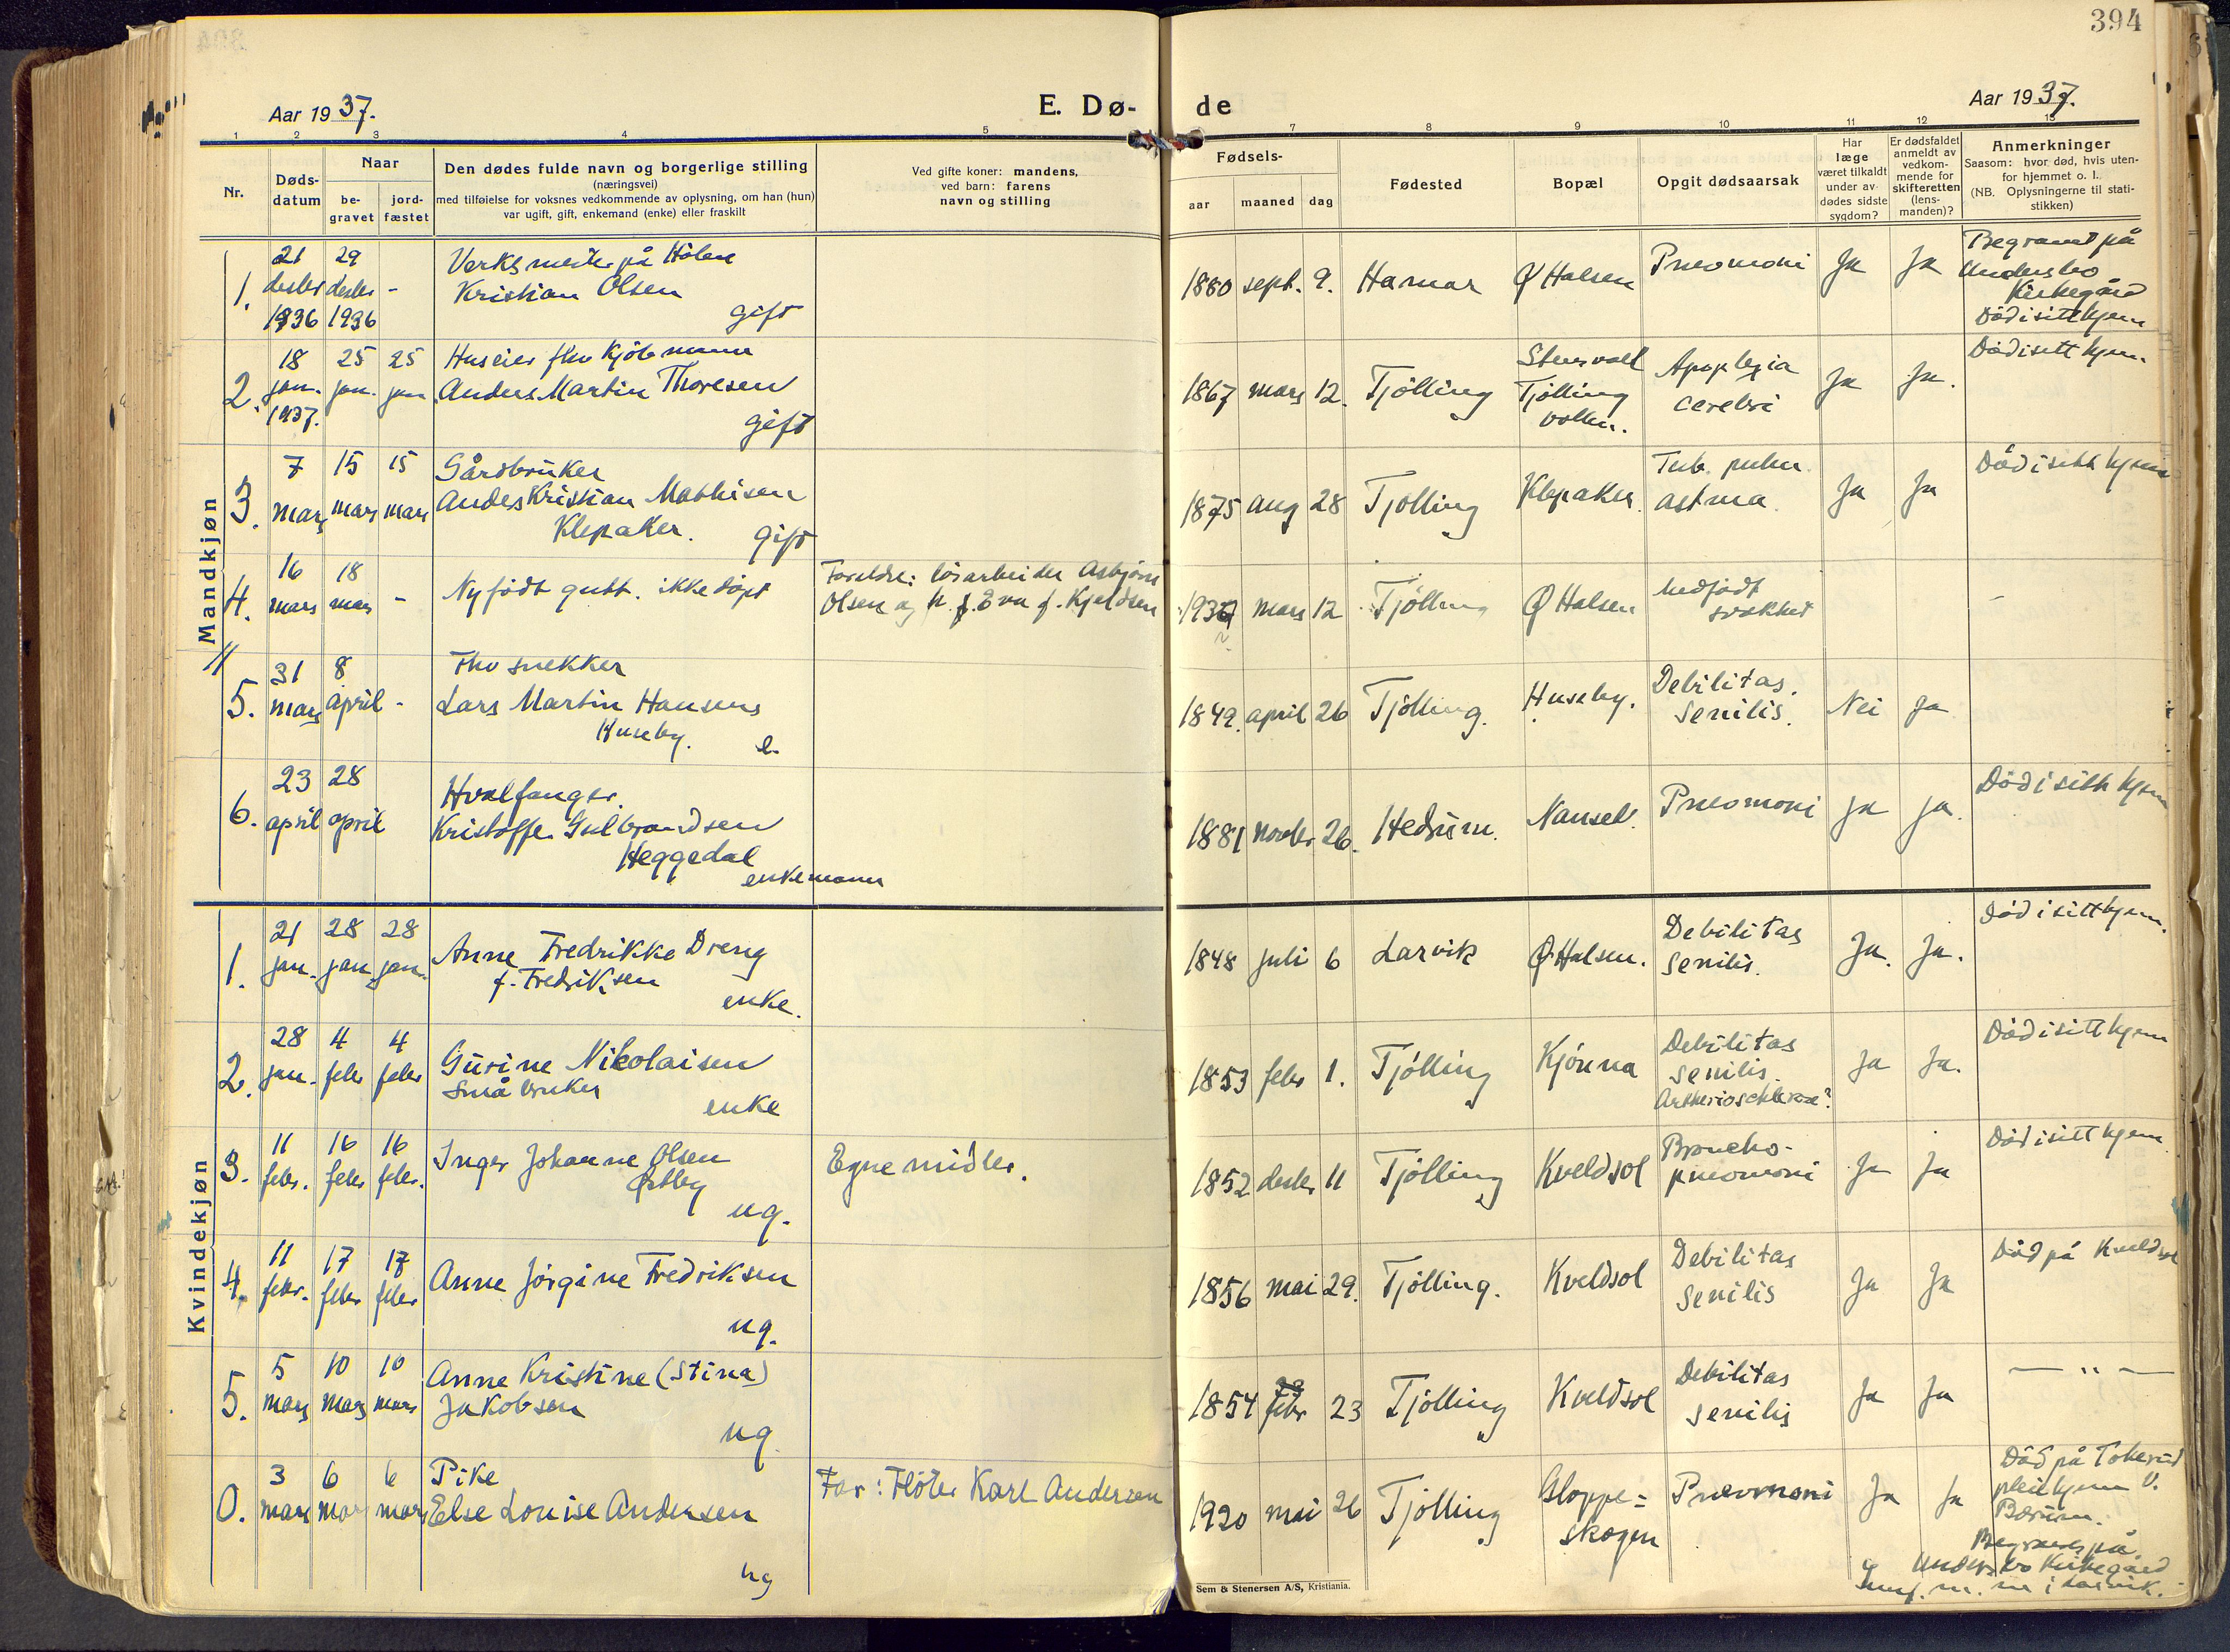 394
Aar 1937.
E. Dø-
de
Aar 1937.
1
2
3
4
5
7
8
9
10
11
12
13
Nr.
Døds-
datum
Naar
be-
gravet
jord-
fæstet
Den dødes fulde navn og borgerlige stilling
(næringsvei)
med tilføielse for voksnes vedkommende av oplysning, om han (hun)
var ugift, gift, enkemand (enke) eller fraskilt
Ved gifte koner: mandens,
ved barn: farens
navn og stilling
Fødsels-
aar
maaned
dag
Fødested
Bopæl
Opgit dødsaarsak
Har
læge
været tilkaldt
under av-
dødes sidste
sygdom?
Er dødsfaldet
anmeldt av
vedkom-
mende for
skifteretten
(lens-
manden)?
Anmerkninger
Saasom: hvor død, hvis uten-
for hjemmet o. l.
(NB. Oplysningerne til stati-
stikken)
Mandkjøn
1.
21 desbr 1936
29 desbr 1936
-
Verksmester på Holen
Kristian Olsen
gift
1880 sept. 9.
Hamar
Ø Halsen
Pneomoni
Ja
Ja
Begravet på
Undersbo
Kirkegård
Död i sitt hjem
2.
18 jan. 1937.
25 jan.
25 jan
Huseier fhv Kjöbmann
Anders Martin Thoresen
gift
1867 mars 12.
Tjölling
Stensvoll
Tjölling
vollen.
Apoplexia
cerebri
Ja
Ja.
Död i sitt hjem
3.
7 mars
15 mars
15 mars
Gårdbruker
Anders Kristian Mathisen
Klepaker.
gift
1875 aug 28
Tjölling
Klepaker.
Tub. pulm.
astma.
Ja
Ja
Död i sitt hjem
4.
16 mars
18 mars
-
Nyfödt gutt. ikke döpt
Foreldre: lösarbeider Asbjörn
Olsen og h. f. Eva f. Kjeldsen
1937 mars 12
Tjölling
Ø Halsen
Medfödt
svakhet
-
5.
31 mars
8 april
-
Fhv snekker
Lars Martin Hansens
Huseby.
e.
1849. april 26
Tjölling.
Huseby.
Debilitas.
Senilis.
Nei
Ja
6.
23 april
28 april
Hvalfanger.
Kristoffer Gulbrandsen
Heggedal
enkemann
1881 novbr 26.
Hedrum.
Nanset.
Pneomoni
Ja
Ja.
Död i sitt hjem
Kvindekjøn
1.
21 jan.
28 jan
28 jan.
Anne Fredrikke Dreng
f. Fredriksen
enke.
1848 juli 6
Larvik
Ø Halsen.
Debilitas
Senilis.
Ja.
Ja.
Död i sitt hjem.
2.
28 jan.
4 febr
4 febr
Gurine Nikolaisen
Småbruker
enke
1853 febr 1.
Tjölling
Kjönna
Debilitas
Senilis.
Ja
Ja.
Död i sitt hjem
3.
11 febr.
16 febr
16 febr.
Inger Johanne Olsen
Østby
ug.
Egne midler.
1852 desbr 11
Tjölling
Kveldsol
Broncho-
pneomoni
Ja
Ja
Död i sitt hjem
4.
11 febr.
17 febr
17 febr
Anne Jörgine Fredriksen
ug.
1856 mai 29.
Tjölling.
Kveldsol
Debilitas
Senilis
Ja
Ja
Död på Kveldsol
5.
5 mars
10 mars
10 mars
Anne Kristine (Stina)
Jakobsen
ug.
1854 febr 23
Tjölling
Kveldsol
Debilitas
senilis
Ja
Ja
— " —
0.
3 mars
6 mars
6 mars
Pike
Else Louise Andersen
ug
Far: Flöter Karl Andersen
1920 mai 26
Tjölling
Gloppe=
skogen
Pneomoni
Ja
Ja
Död på Tokerud
pleiehjem V.
Bærum.
Begravet på
Undersbo Kirkegård
i Larvik.
Sem & Stenersen A/S, Kristiania.